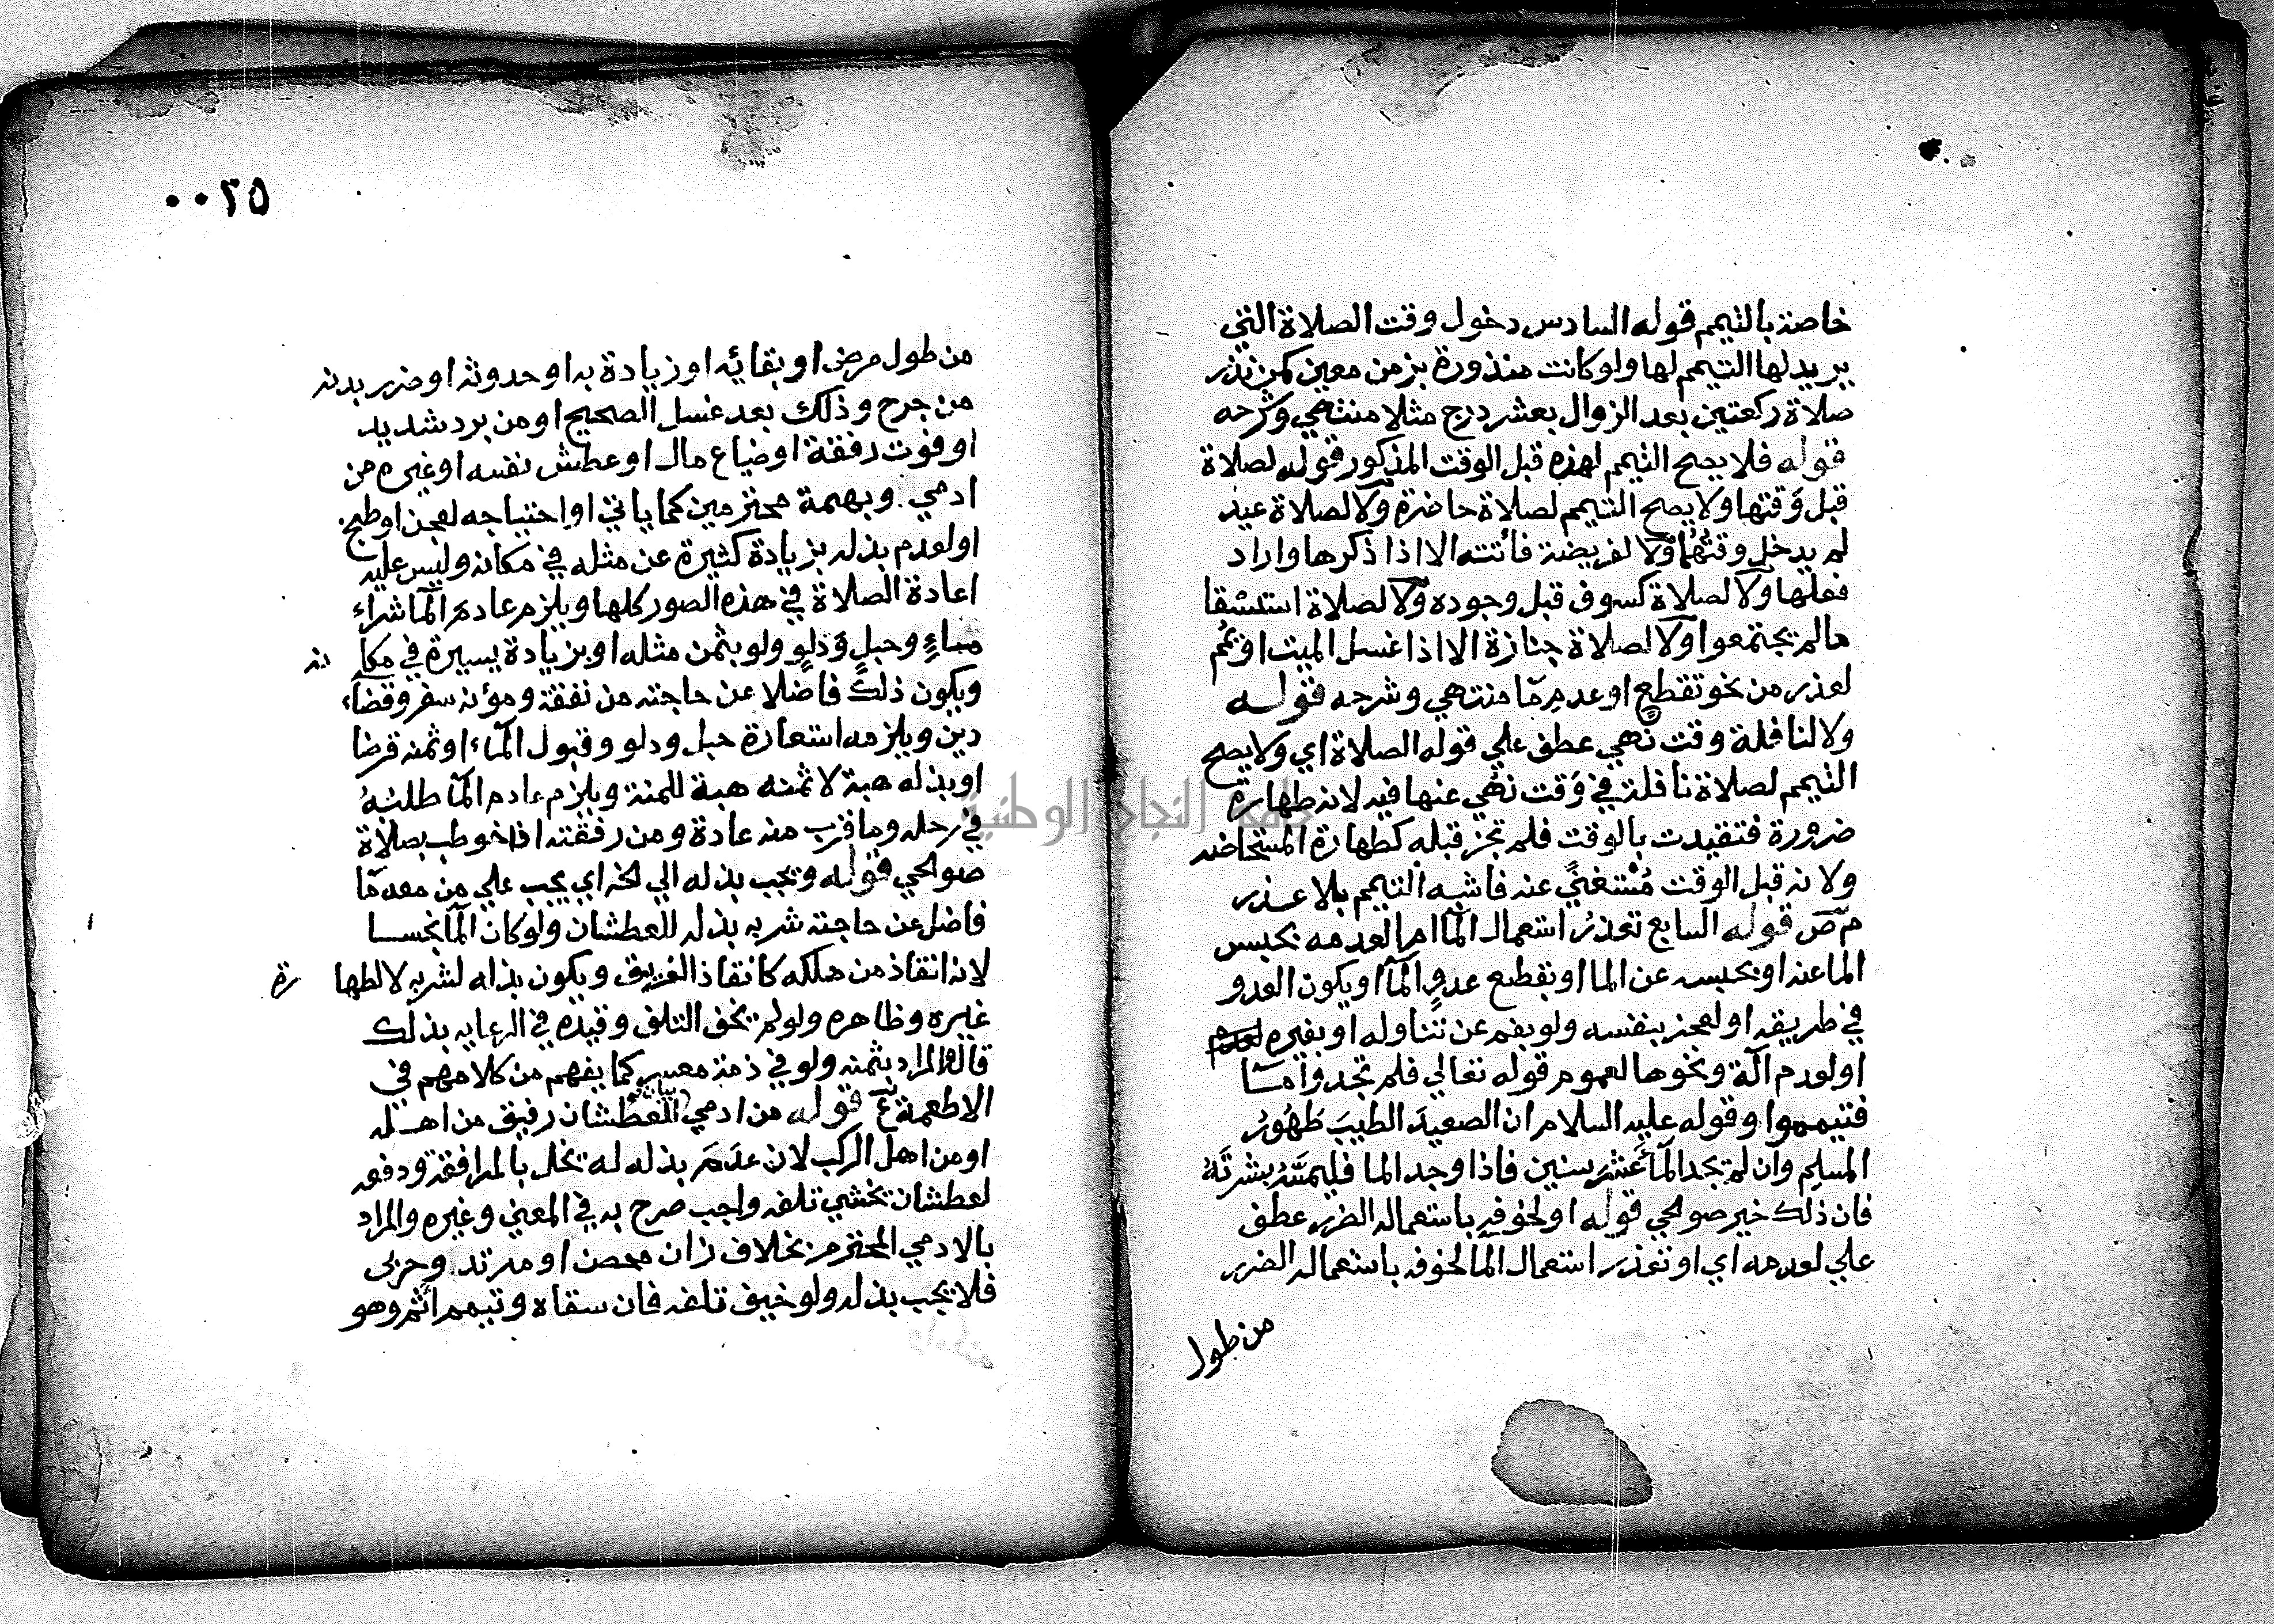 خاصة بالتيمم قوله السادس دخول وقت الصلاة التي
يريد لها التيمم لها ولو كانت منذورة بزمن معين كمن نذر
صلاة ركعتين بعد الزوال بعشر درج مثلا منتهي وشرحه
قوله فلا يصح التيمم لهذه قبل الوقت المذكور قوله لصلاة
قبل وَقتها ولا يصح التيمم لصلاة حاضرة ولا لصلاة عيد
لم يدخل وقتُهُما ولا لفريضة فائتته الا اذا ذكرها واراد
فعلها ولا لصلاة كسوف قبل وجوده ولا لصلاة استسقا
مالم يجتمعوا ولا لصلاة جنازة الا اذا غسل الميت او يُمم
لعذر من نحو تقطع او عدم مآ منتهي وشرحه قوله
ولا لنافلة وقت نهي عطف علي قوله الصلاة اي ولا يصح
التيمم لصلاة نافلة في وَقت نهُي عنها فيه لانه طهارة
ضرورة فتقيدت بالوقت فلم تجز قبله كطهارة المستحاضه
ولانه قبل الوقت مُسْتغنيً عنه فاشبه التيمم بلا عذر
م ص قوله السابع تعذرُ استعمال المآ اما لعدمه بحبس
الما عنه او بحبسه عن الما او بقطع عدوٍ المآ او يكون العدو
في طريقه او لعجز بنفسه ولو بفم عن تناوله او بغيره لعدم
او لعدم آلة ونحوها لعموم قوله تعالي فلم تجدوا مآ
فتيمموا وقوله عليه السلام ان الصعيدَ الطيبَ طَهُورُ
المسلِم وان لم يجد المآ عَشر سنين فاذا وجد الما فليمسَّهُ بشرتَهُ
فان ذلك خير صوالحي قوله او لخوفه باستعماله الضرر عطف
علي لعدمه اي او تعذر استعمال الما لخوفه باستعماله الضرر
من طول
٠٠٢٥
من طول مرض او بقائه او زيادة به او حدوثه او ضرر بدنه
من جرح وذلك بعد غسل الصحيح او من برد شديد
او فوت رفقة او ضياع مال او عطش نفسه او غيره من
ادمي وبهيمة محترمين كما ياتي او احتياجه لعجن او طبخ
او لعدم بذله بزيادة كثيرة عن مثله في مكانه وليس عليه
اعادة الصلاة في هذه الصور كلها ويلزم عادمَ المآ شراء
مَاءٍ وحبلٍ وَدَلوٍ ولو بثمن مثله او بزيادة يسيرة في مكا نه
ويكون ذلك فاضلا عن حاجته من نفقة ومؤنه سفر وقضاء
دين ويلزمه استعارة حبل ودلو وقبول المآء او ثمنه قرضا
او بذله هبة لا ثمنه هبة للمنة ويلزم عادم المآ طلبُهُ
في رحله وما قرب منه عادة ومن رفقته اذا خوطب بصلاة
صوالحي قوله ويجب بذله الي اخره اي يجب علي من معه مآ
فاضل عن حاجته شربه بذله للعطشان ولو كان المآ نجسا
لانه انقاذ من هلكه كانقاذ الغريق ويكون بذله لشربه لا لطها رة
غيره وظاهره ولو لم يخف التلف وقيده في الرعايه بذلك
قاله والمراد بثمنه ولو في ذمة معسر كما يفهم من كلامهم في
الاطعمة ع قوله من ادمي بيان للعطشان رفيق من اهله
او من اهل الركب لان عدَمَ بذله له يخل بالمرافقة ودفعه
لعطشان يخشي تلفه واجب صرح به في المغني وغيره والمراد
بالادمي المحترم بخلاف زان محصن او مرتد وحربى
فلا يجب بذله ولو خيف تلفه فان سقاه وتيمم أثم وهو
جامعة النجاح الوطنية